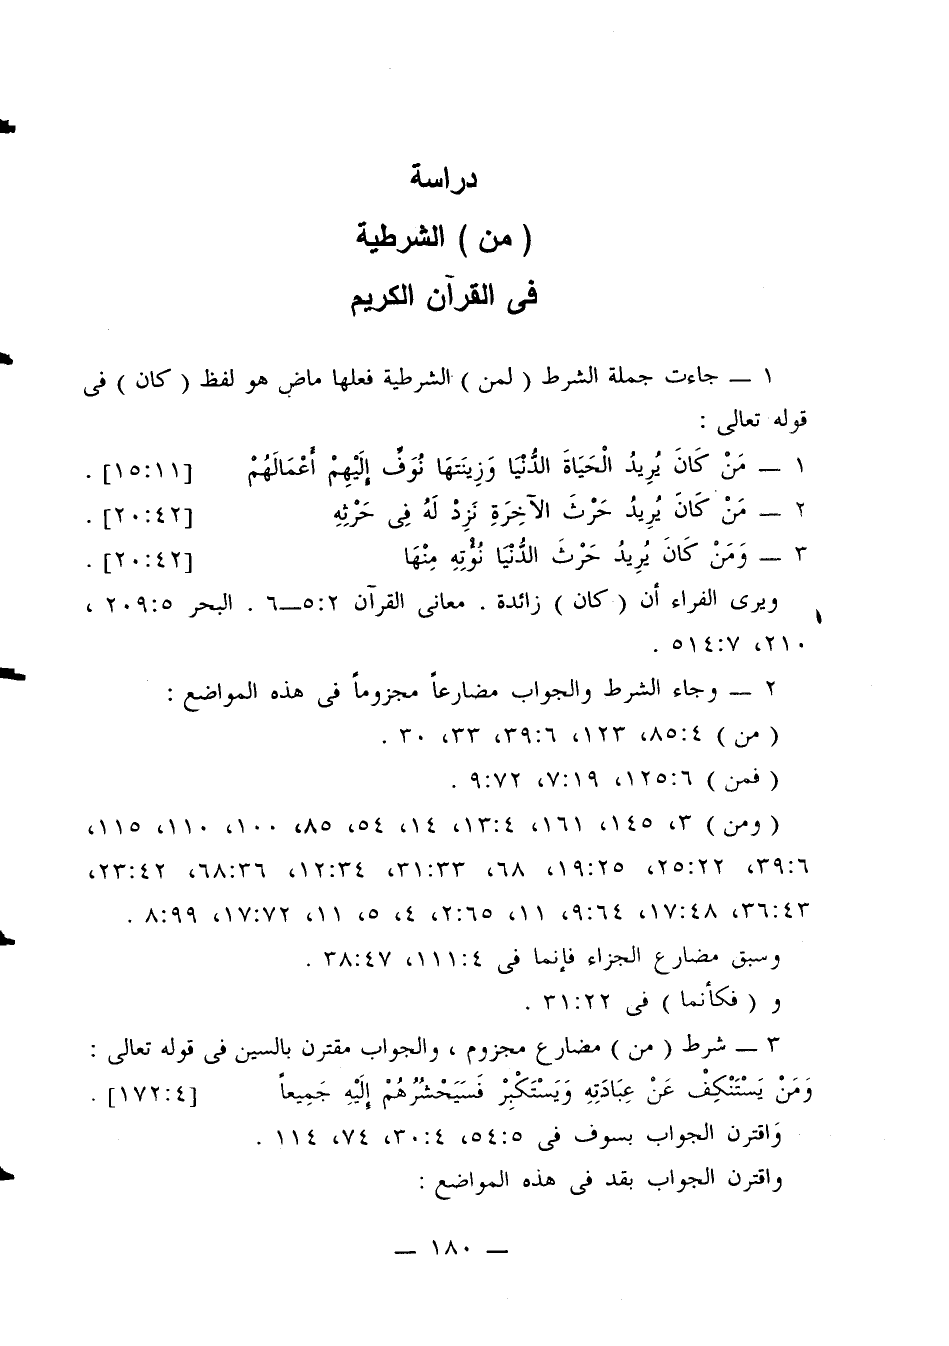 دراسة
( من ) الشرطية
فى القرآن الكريم
١ ــ جاءت جملة الشرط ( لمن ) الشرطية فعلها ماض هو لفظ ( كان ) فى
قوله تعالى :
١ ــ مَنْ كَانَ يُرِيدُ الْحَيَاةَ الدُّنْيَا وَزِينَتهَا نُوَفِّ إِلَيْهِمْ أَعْمَالَهُمْ [١٥:١١] .
٢ ــ مَنْ كَانَ يُرِيدُ حَرْثَ الآخِرَةِ نَزِدْ لَهُ فِى حَرْثِهِ [٢٠:٤٢] .
٣ ــ وَمَنْ كَانَ يُرِيدُ حَرْثَ الدُّنْيَا نُؤْتِهِ مِنْهَا [٢٠:٤٢] .
ويرى الفراء أن ( كان ) زائدة . معانى القرآن ٥:٢ــ٦ . البحر ٢٠٩:٥ ،
٢١٠، ٥١٤:٧ .
٢ ــ وجاء الشرط والجواب مضارعاً مجزوماً فى هذه المواضع :
( من ) ٨٥:٤، ١٢٣، ٣٩:٦، ٣٣، ٣٠ .
( فمن ) ١٢٥:٦، ٧:١٩، ٩:٧٢ .
( ومن ) ٣، ١٤٥، ١٦١، ١٣:٤، ١٤، ٥٤، ٨٥، ١٠٠، ١١٠، ١١٥،
٣٩:٦، ٢٥:٢٢، ١٩:٢٥، ٦٨، ٣١:٣٣، ١٢:٣٤، ٦٨:٣٦، ٢٣:٤٢،
٣٦:٤٣، ١٧:٤٨، ٩:٦٤، ١١، ٢:٦٥، ٤، ٥، ١١، ١٧:٧٢، ٨:٩٩ .
وسبق مضارع الجزاء فإنما فى ١١١:٤، ٣٨:٤٧ .
و ( فكأنما ) فى ٣١:٢٢ .
٣ ــ شرط ( من ) مضارع مجزوم ، والجواب مقترن بالسين فى قوله تعالى :
وَمَنْ يَسْتَنْكِفْ عَنْ عِبَادَتِهِ وَيَسْتَكْبِرْ فَسَيَحْشُرُهُمْ إِلَيْهِ جَمِيعاً [١٧٢:٤] .
وَاقترن الجواب بسوف فى ٥٤:٥، ٣٠:٤، ٧٤، ١١٤ .
واقترن الجواب بقد فى هذه المواضع :
ــ ١٨٠ ــ